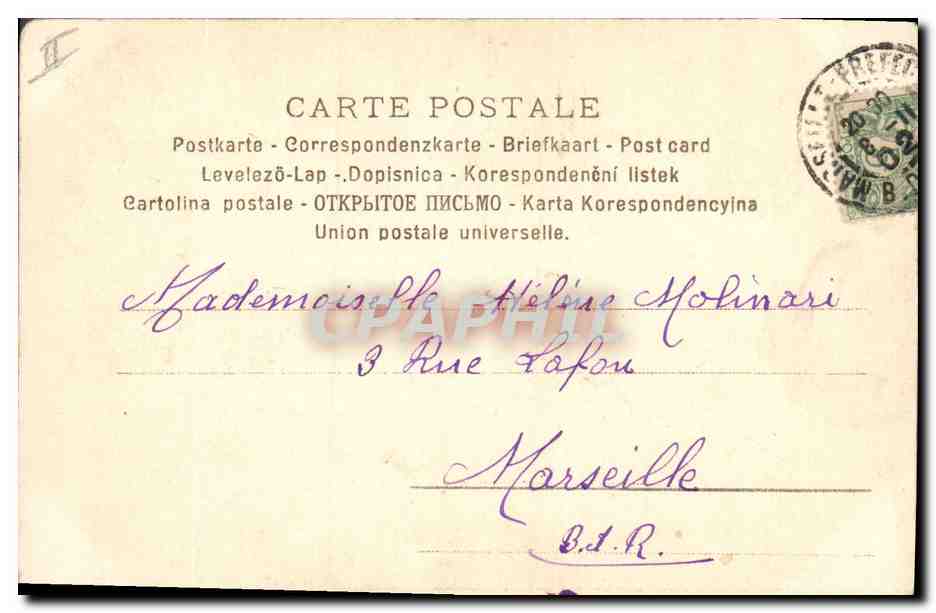 II
CARTE POSTALE
Postkarte - Correspondenzkarte - Briefkaart - Post card
Levelezö-Lap -.Dopisnica - Korespondenční listek
Cartolina postale - ОТКРЫТОЕ ПИСЬМО - Karta Korespondencyjna
Union postale universelle.
MARSEILLE PREFEC
20 30
B
Mademoiselle Hélène Molinari
CPAPHIL
3 Rue Lafon
Marseille
B.d.R.